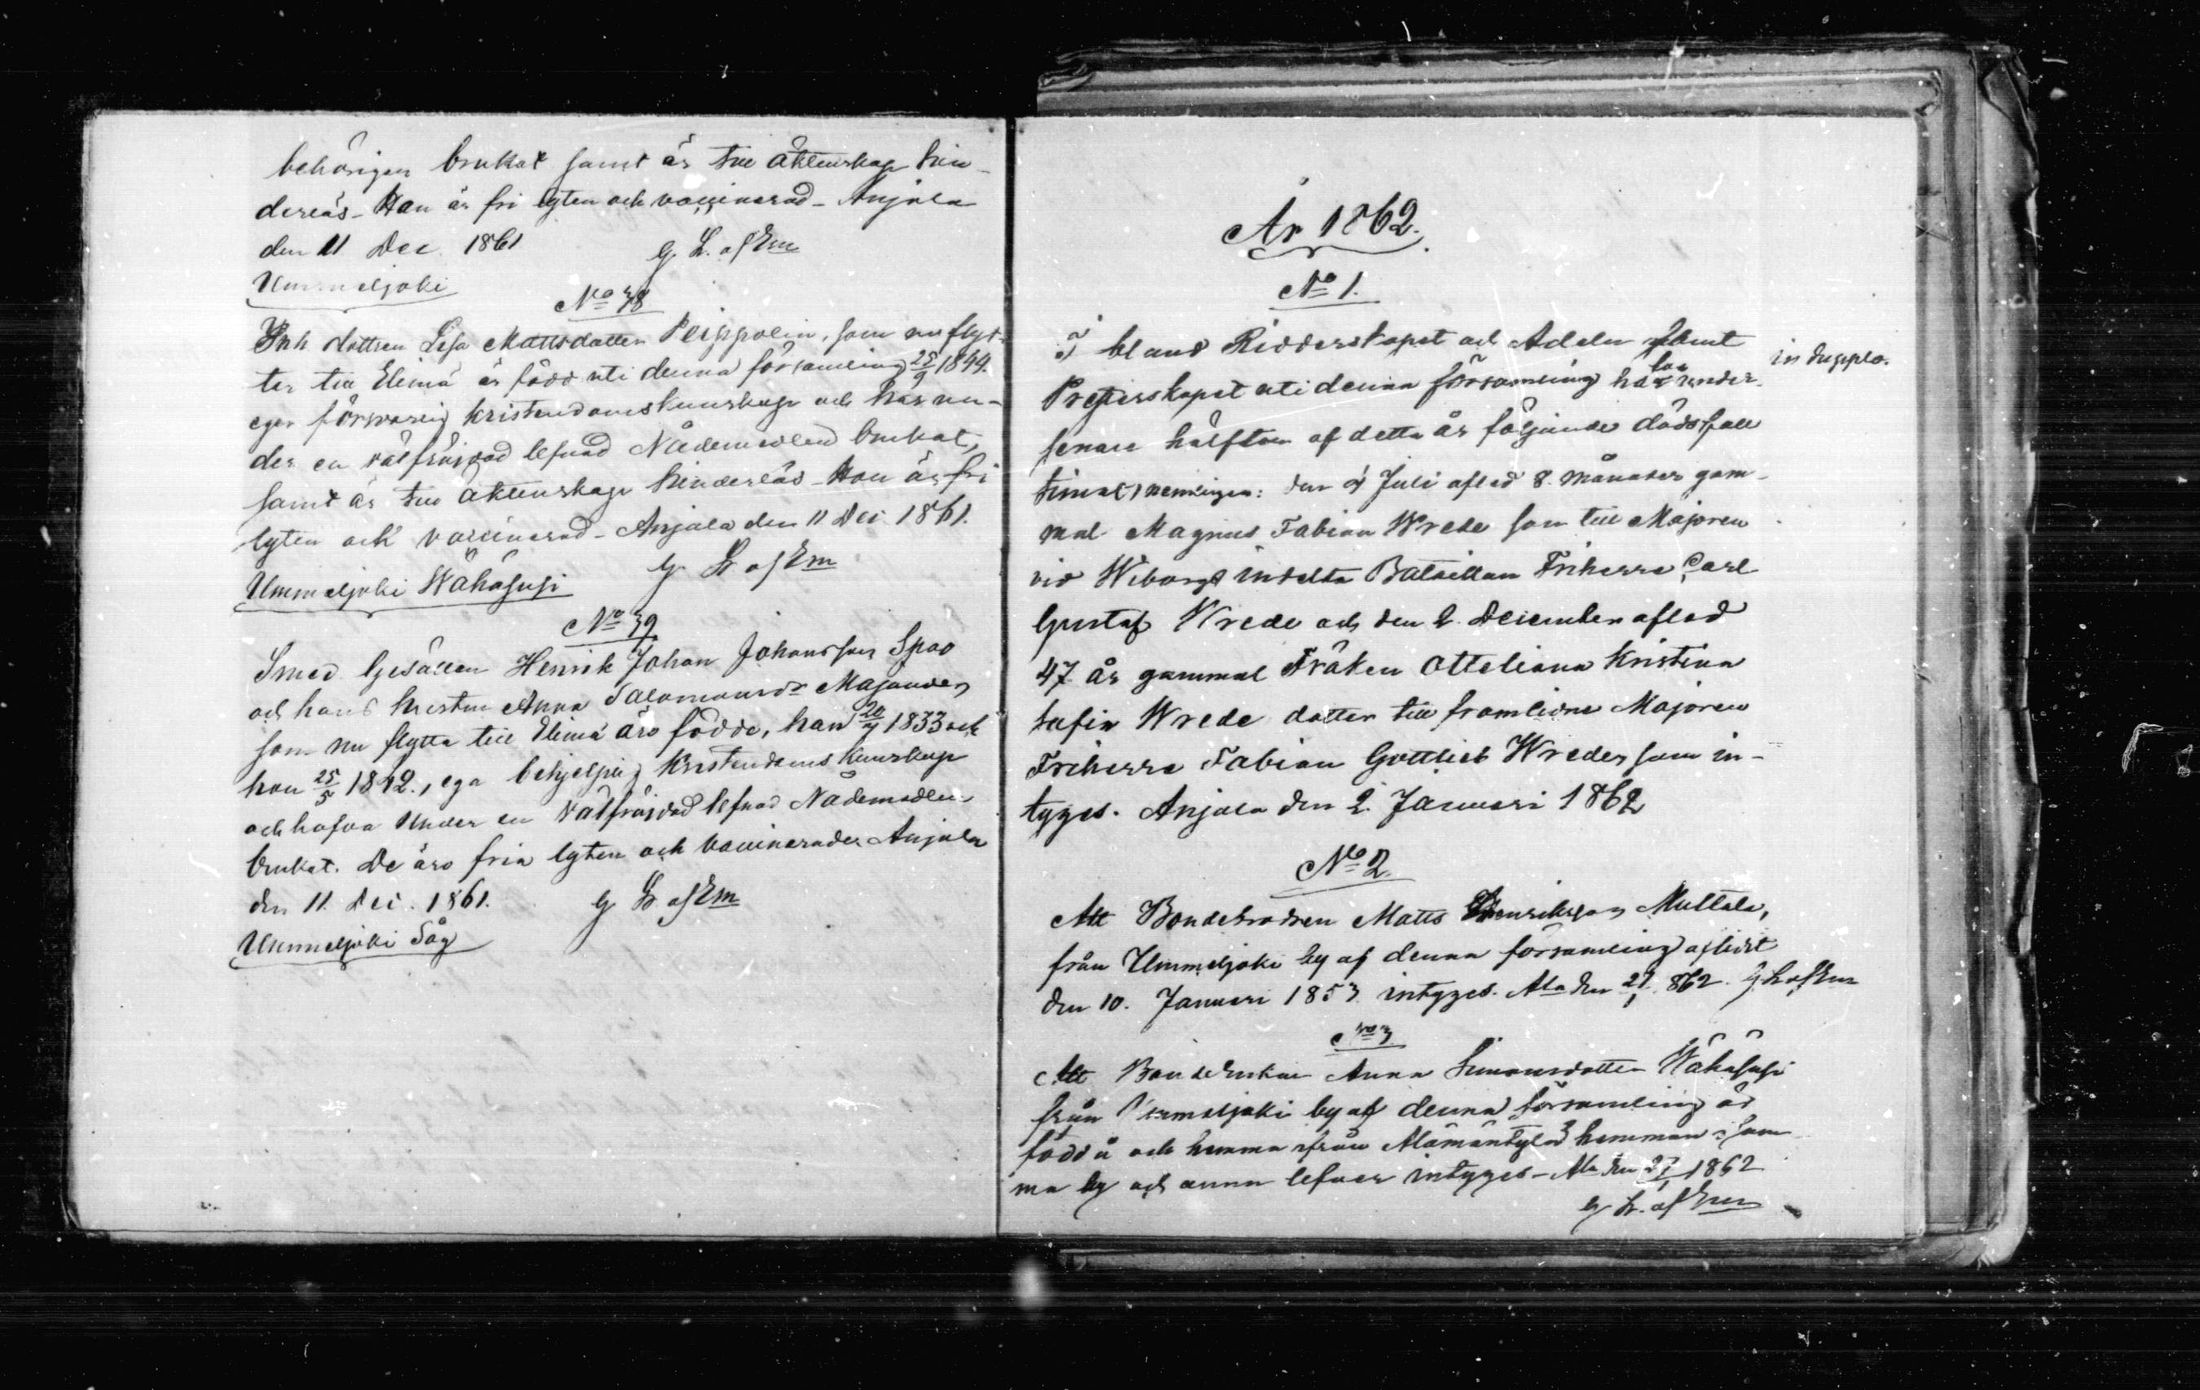 behörigen brukat samt är till äktenskap hin-
derlös. Han är fri lyten och vaccinerad. Anjala
den 11 Dec. 1861 G. L. af Em
Ummeljoki
No 38
Inh dottren Lisa Mattsdotter Peippolin, som nu flyt-
ter till Elimä är född uti denna församling 25/9 1844.
eger försvarlig kristendomskunskap och har un-
der en välfräjdad lefnad Nådemedlen brukat,
samt är till äktenskap hinderlös. Hon är fri
lyten och vaccinerad. Anjala den 11 Dec 1861.
Ummeljoki Wähäsusi G Lr af Em
No 39
Smed Gesällen Henrik Johan Johansson Spoo
och hans hustru Anna Salomonsdr Majander
som nu flytta till Elimä äro födde, han 20/7 1833 och
hon 25/5 1842., ega behjelplig kristendoms kunskap
och hafva under en välfräjdad lefnad Nådemedlen
brukat. De äro fria lyten och vaccinerade. Anjala
den 11. Dec. 1861. G Lr af Em
Ummeljoki Såg
År 1862.
No 1.
I bland Ridderskapet och Adeln samt
Presterskapet uti denna församling hafva under in duplo.
senare hälften af detta år följande dödsfall
timat, nemligen: den Juli afled 8. månader gam-
mal Magnus Fabian Wrede son till Majoren
vid Wiborgs indelta Bataillon Friherre Carl
Gustaf Wrede och den 2. December afled
47 år gammal Fröken Otteliana Kristina
Sofia Wrede dotter till framlidne Majoren
Friherre Fabian Gottlieb Wrede, som in-
tyges. Anjala den 2. Januari 1862
No 2.
Att Bondebrodren Matts Henriksson Multala,
från Ummeljoki by af denna församling aflidit
den 10. Januari 1853. intyges. Ala den 27/1 862. G Lr af Em
No 3
Att Bondehustrun Anna Simonsdotter Wähäsusi
från Ummeljoki by af denna församling är
född å och hemma ifrån Alamäntylä hemman i sam-
ma by och ännu lefver intyges. Ala den 27/1 1862
G Lr. af Em